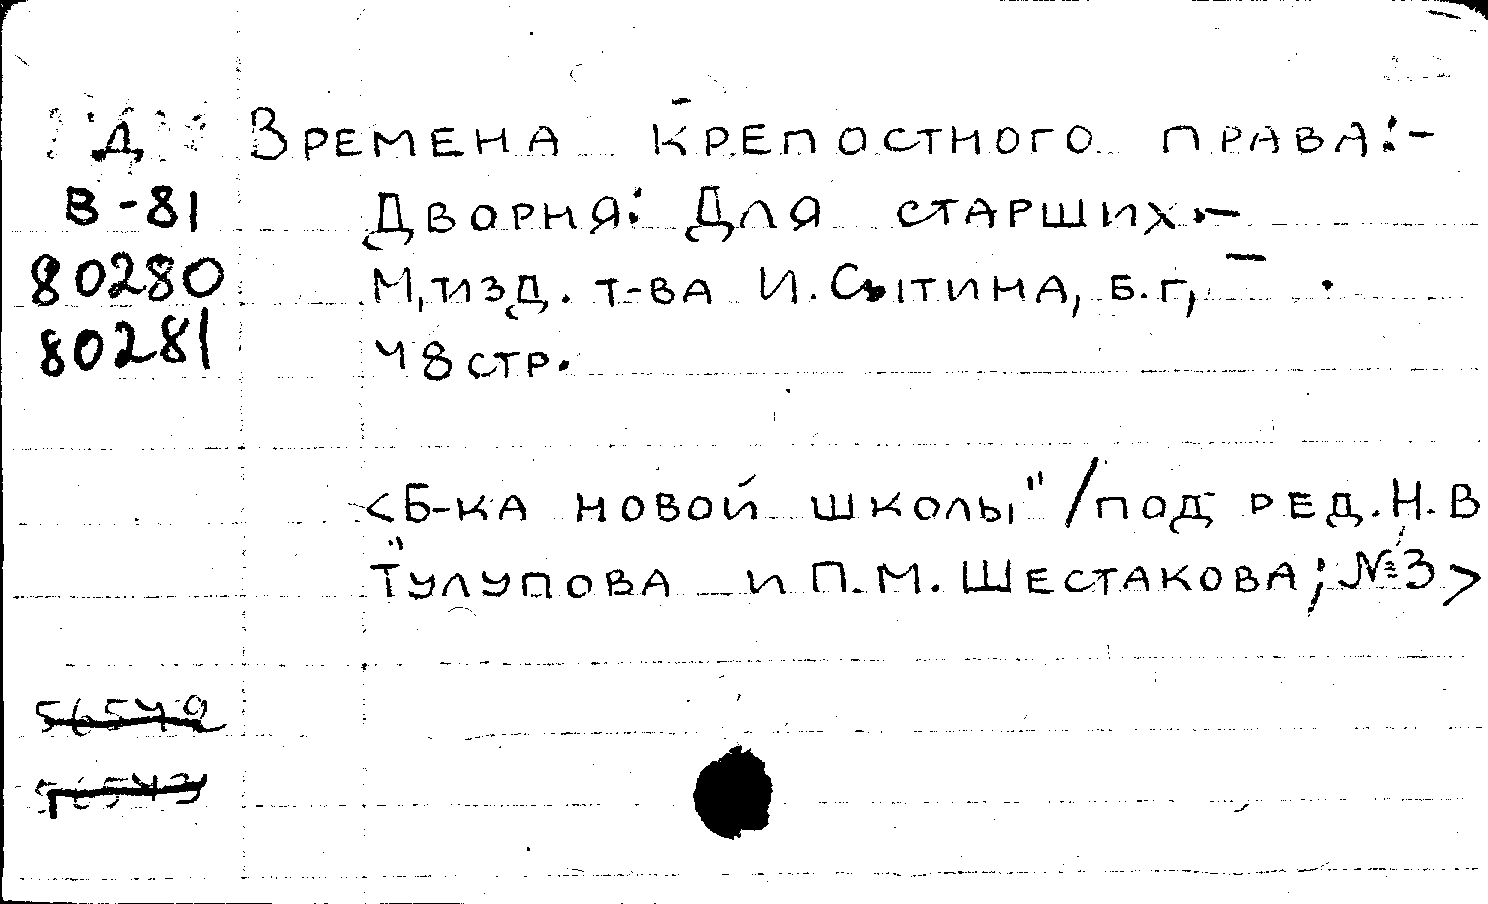 Д Времена крепостного права:-
В-81 Дворня: Для старших.-
80280 М, тизд. т-ва И. Сытина, б.г,
80281 48 стр.
<Б-ка новой школы" / под ред. Н.В
"Тулупова и П.М. Шестакова; №3>
56542
56543